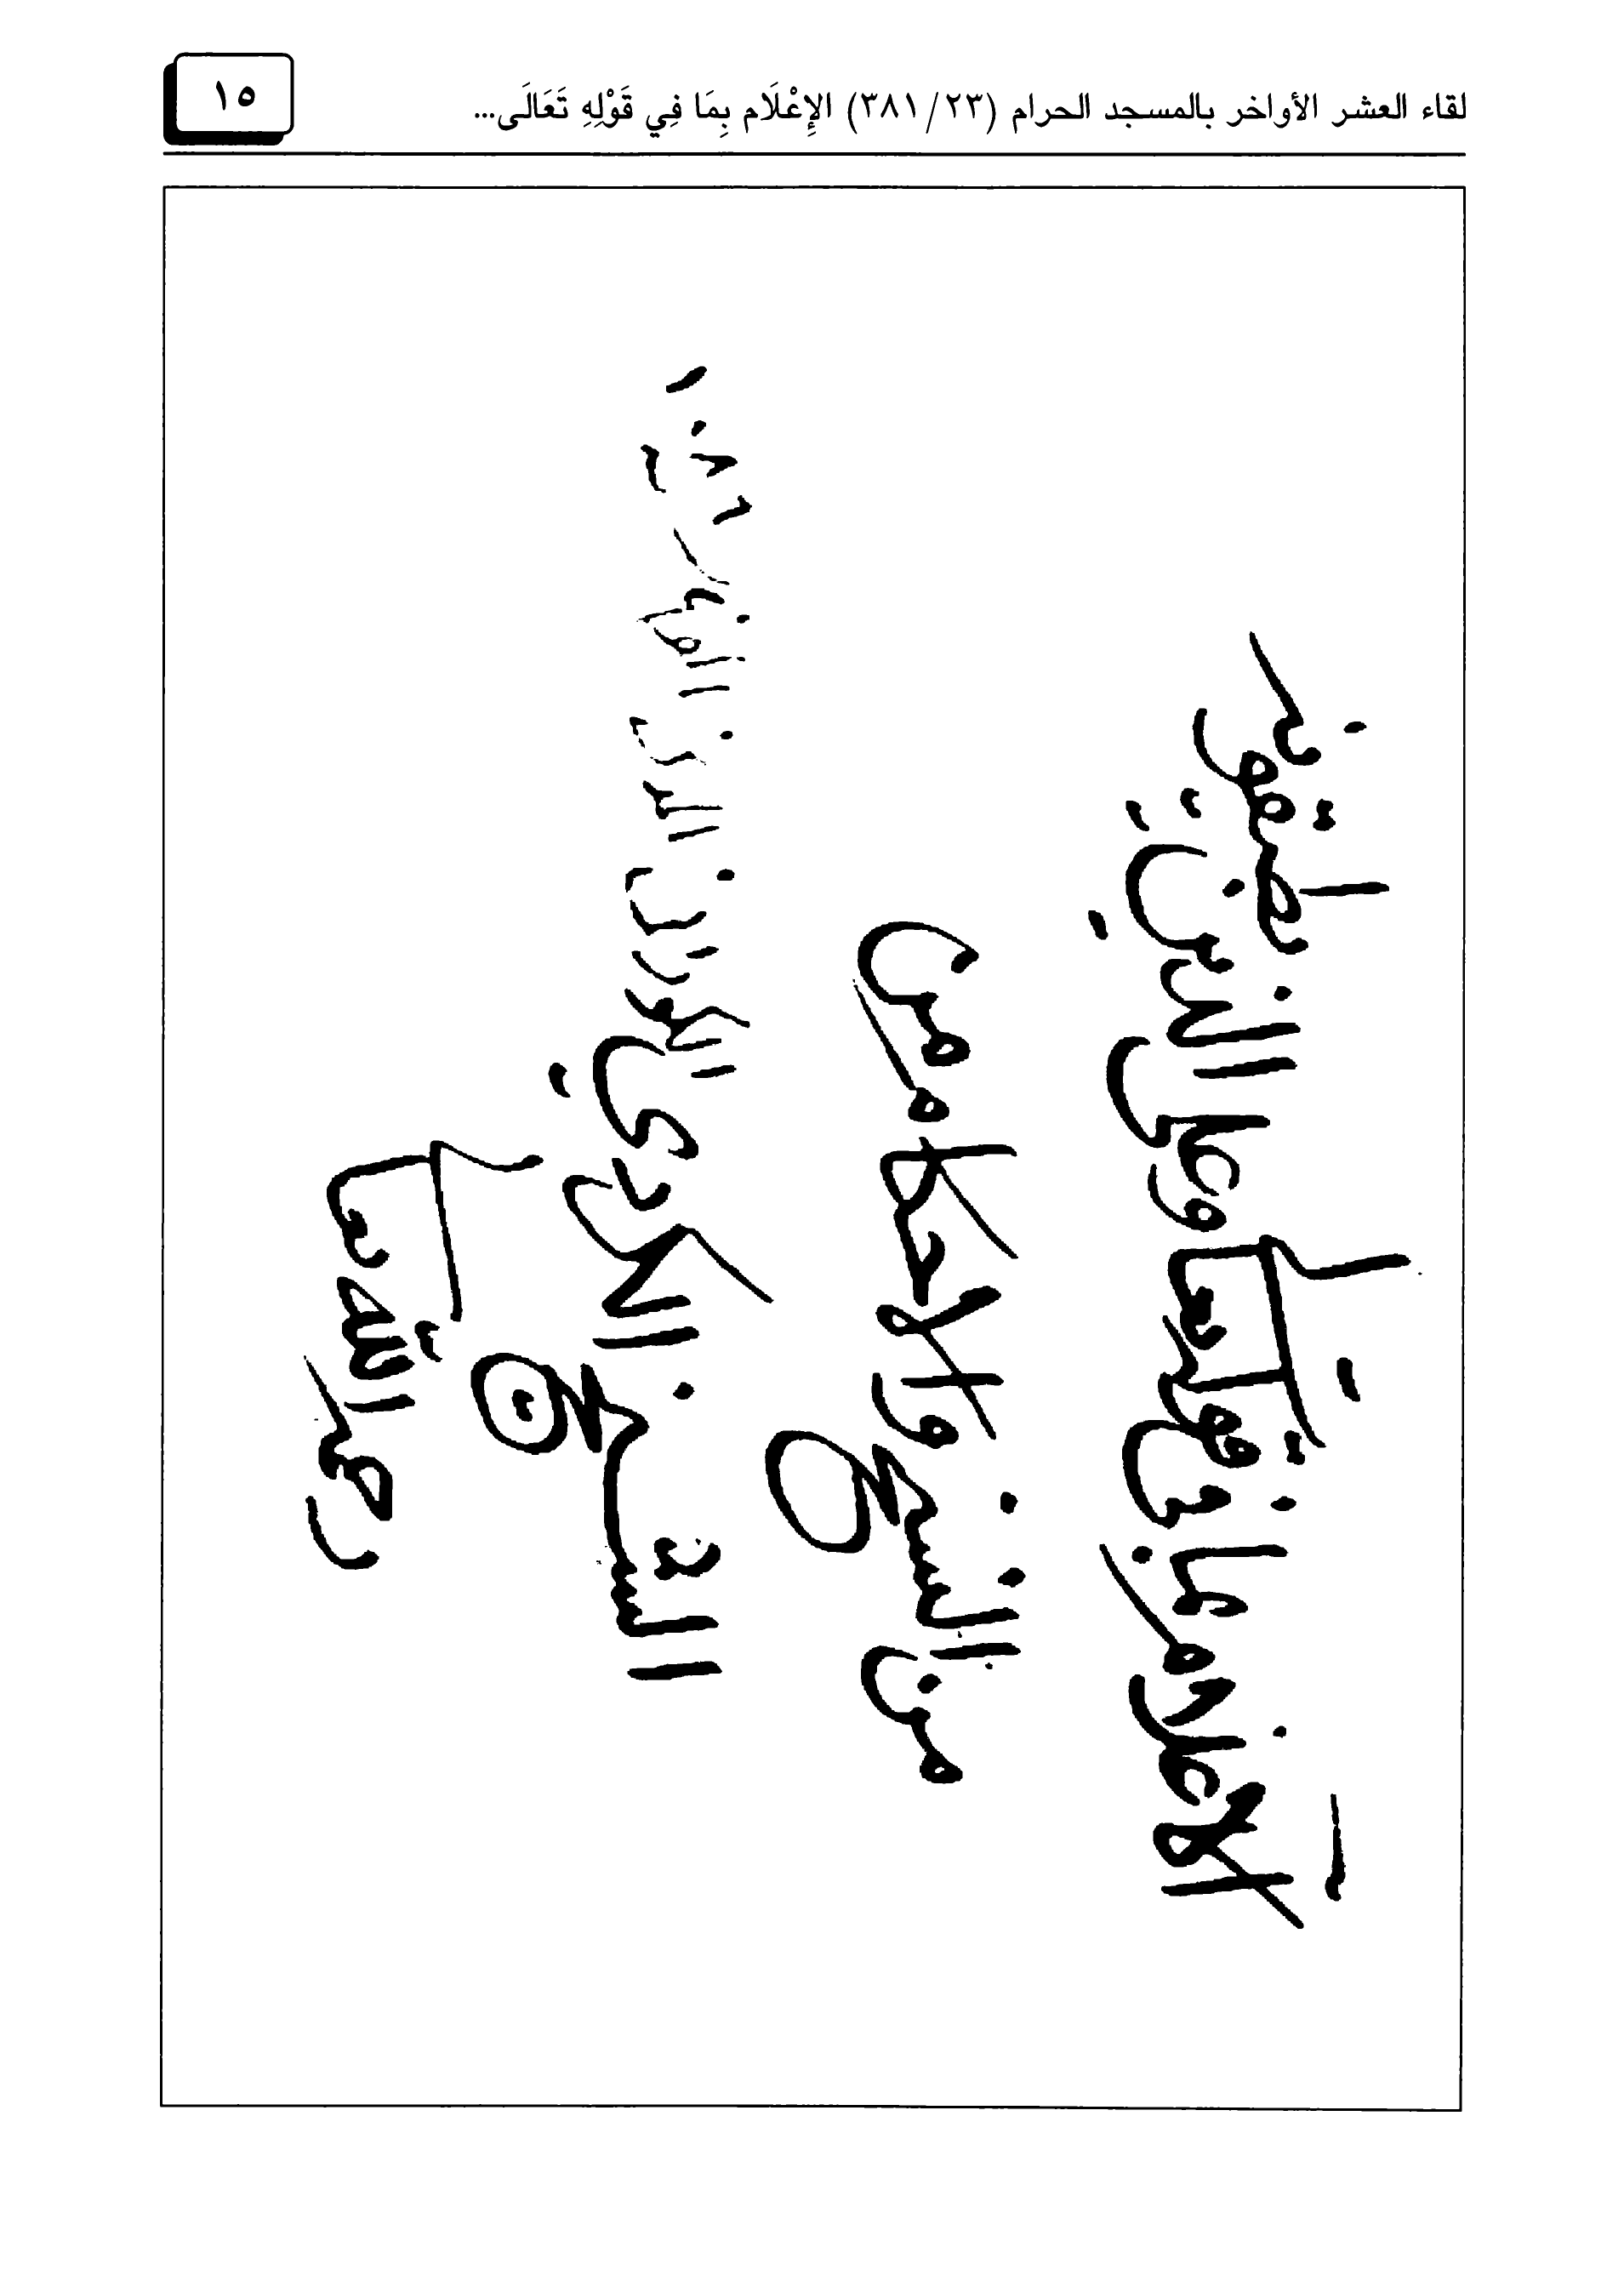 لقاء العشر الأواخر بالمسجد الحرام (٢٣/ ٣٨١) الإِعْلَام بِمَا فِي قَوْلِهِ تَعَالَى...
١٥
الاعلام بما في قوله تعالى وعلى الذين يطيقونه
من النسخ والاحكام من
الشيخ الكردي
رحمه الله تعالى